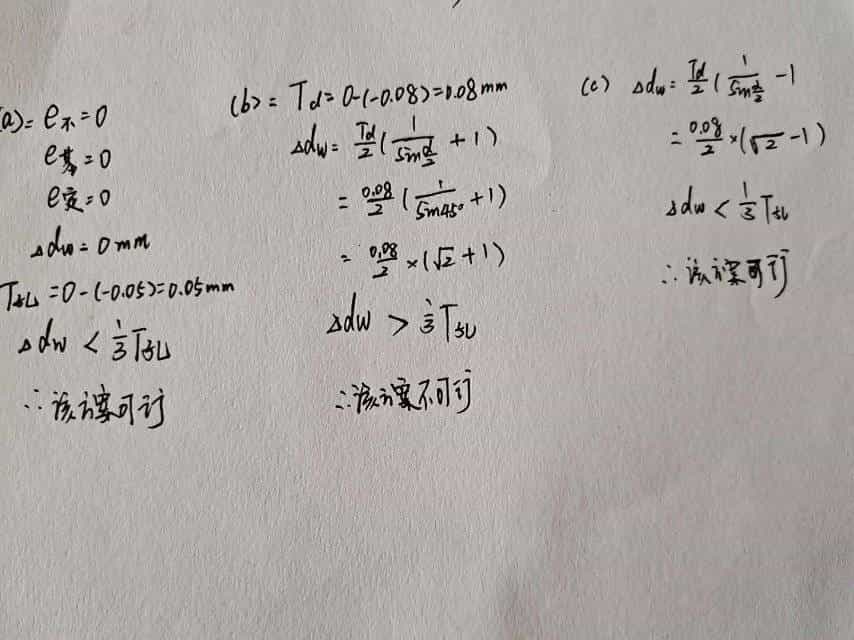 (a)= e不=0
e基=0
e定=0
Δdw=0mm
T孔=0-(-0.05)=0.05mm
Δdw < 1/3 T孔
∴该方案可行
(b)= Td=0-(-0.08)=0.08mm
Δdw= Td/2 ( 1/sin α/2 + 1)
= 0.08/2 ( 1/sin45° + 1)
= 0.08/2 ×(√2 + 1)
Δdw > 1/3 T孔
∴该方案不可行
(c) Δdw= Td/2 ( 1/sin α/2 - 1
= 0.08/2 ×(√2 - 1)
Δdw < 1/3 T孔
∴该方案可行